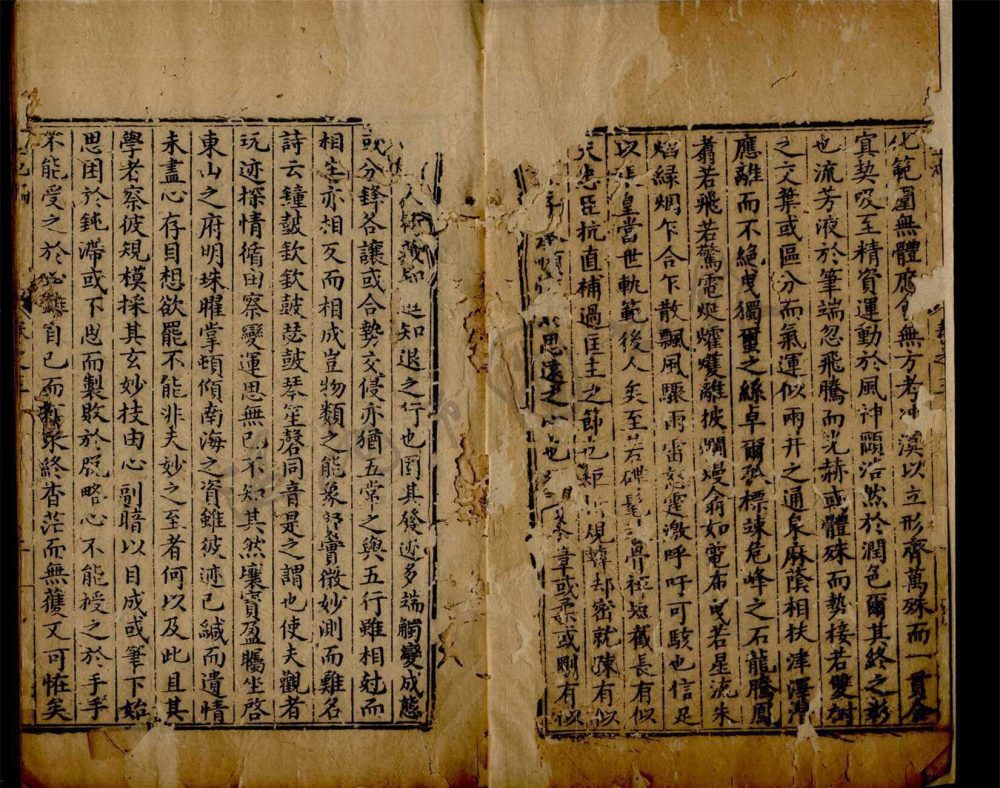 化範圍無體應會無方考冲漠以立形齊萬殊而一貫合
宜契吸至精資運動於風神頤浩然於潤色爾其終之彰
也流芳液於筆端忽飛騰而光赫或體殊而勢接若雙樹
之交葉或區分而氣運似兩井之通泉麻蔭相扶津澤潛
應離而不絶曳獨蠒之絲卓爾孤標竦危峰之石龍騰鳳
翥若飛若驚電烻爥㸌離披爛熳翕如電布曳若星流朱
焰緑烟乍合乍散飄風驟雨雷怒霆激呼吁可駭也信足
以張皇當世軌範後人矣至若磔髦骨裨短截長有似
夫忠臣抗直補過匡主之節也矩規轉却密就疎有似
思遠之心也含章或柔或剛有似
人知進知退之行也固其發迹多端觸變成態
或分鋒各讓或合勢交侵亦猶五常之與五行雖相尅而
相生亦相反而相成豈物類之能象賢實微妙測而難名
詩云鐘鼓欽欽鼓瑟鼓琴笙磬同音是之謂也使夫觀者
玩迹探情循由察變運思無已不知其然壤寳盈矚坐啓
東山之府明珠曜掌頓傾南海之資雖彼迹已緘而遺情
未盡心存目想欲罷不能非夫妙之至者何以及此且其
學者察彼規模採其玄妙技由心副暗以目成或筆下始
思困於鈍滯或不思而製敗於脱略心不能授之於手手
不能受之於自已而求終杳茫而無獲又可恠矣